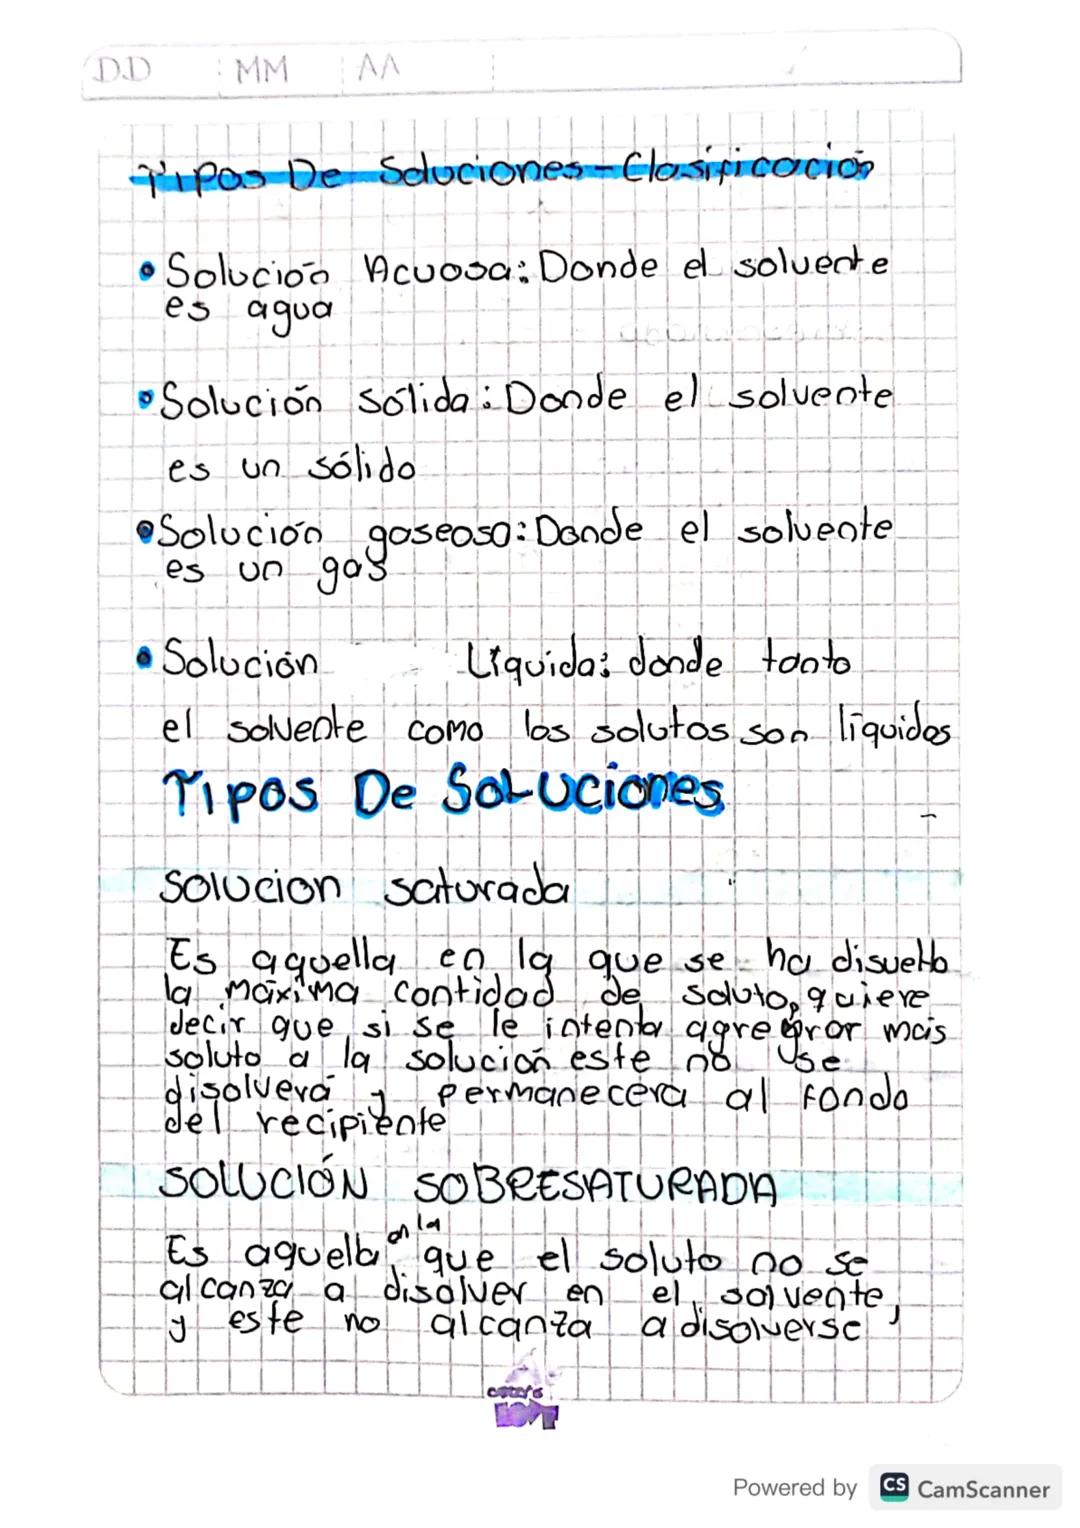 DD MM AA
Tipos De Soluciones - Clasificación
• Solución Acuosa: Donde el solvente
es agua
• Solución sólida: Donde el solvente
es un sólido
• Solución gaseosa: Donde el solvente
es un gas
• Solución Líquida: donde tanto
el solvente como los solutos son líquidos
Tipos De Soluciones
Solucion saturada
Es aquella en la que se ha disuelto
la máxima cantidad de soluto, quiere
decir que si se le intenta agregrar mas
soluto a la solución este no se
disolverá y permanecerá al fondo
del recipiente
SOLUCIÓN SOBRESATURADA
Es aquella en la que el soluto no se
alcanza a disolver en el solvente,
y este no alcanza a disolverse
Powered by CS CamScanner